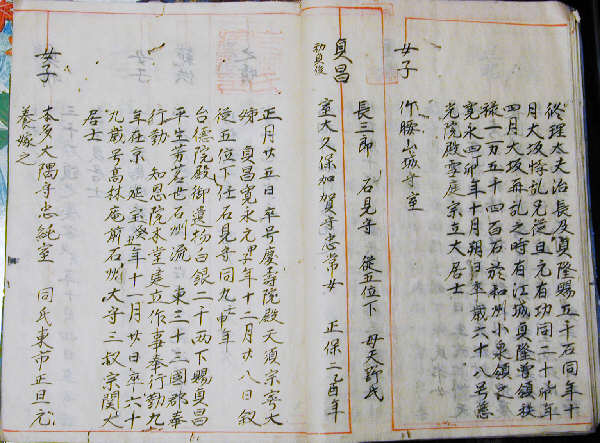 修理太夫治長及貞隆賜五千石同年十
月大坂惇乱兄従且元有功同二十卯年
四月大坂再乱之時有江城貞隆曽領秩
禄一万五千四百石於和州小泉領是
寛永四卯年十月朔日卒歳六十八号慈
光院殿雪庭宗立大居士
女子 作勝山城守室
貞昌 初貞俊
長三郎 石見守 従五位下 母天野氏
室大久保加賀守忠常女 正保二乙酉年
正月廿五日卒号慶寿院殿天須宗大
姉 貞昌寛永元年十二月廿八日叙
従五位下任石見守同九年
台徳院殿御遺物白銀二千両下賜貞昌
平生芳茗也石州流 東三十三國郡奉
行勤 知恩院本堂建立作事奉行勤九
年在京 延宝年十一月廿日卒六十
九歳号高林庵前石州大守三叔宗関大
居士
女子 本多大隅守忠純室 同氏東市正且元
養嫁之